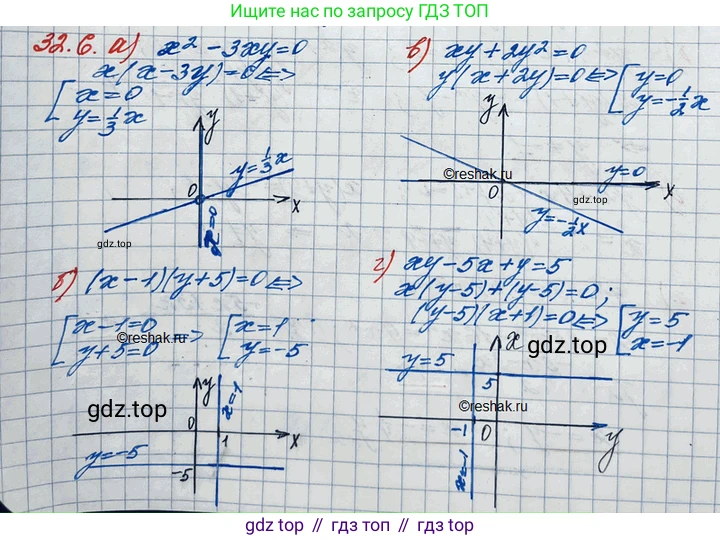 Ищите нас по запросу ГДЗ ТОП
32.6. а) x² - 3xy = 0
x(x-3y) = 0 <=>
[ x = 0
y = 1/3 x
y
y = 1/3 x
0
x
x = 0
gdz.top
в) xy + 2y² = 0
y(x+2y) = 0 <=> [ y = 0
y = -1/2 x
y
©reshak.ru
y = 0
0
x
gdz.top
y = -1/2 x
б) (x-1)(y+5) = 0 <=>
[ x-1 = 0
y+5 = 0
=> [ x = 1
y = -5
©reshak.ru
y
x = 1
gdz.top
0
1
x
y = -5
-5
г) xy - 5x + y = 5
x(y-5) + (y-5) = 0;
(y-5)(x+1) = 0 <=> [ y = 5
x = -1
x
gdz.top
y = 5
5
©reshak.ru
-1
0
y
x = -1
gdz.top // гдз топ // gdz.top